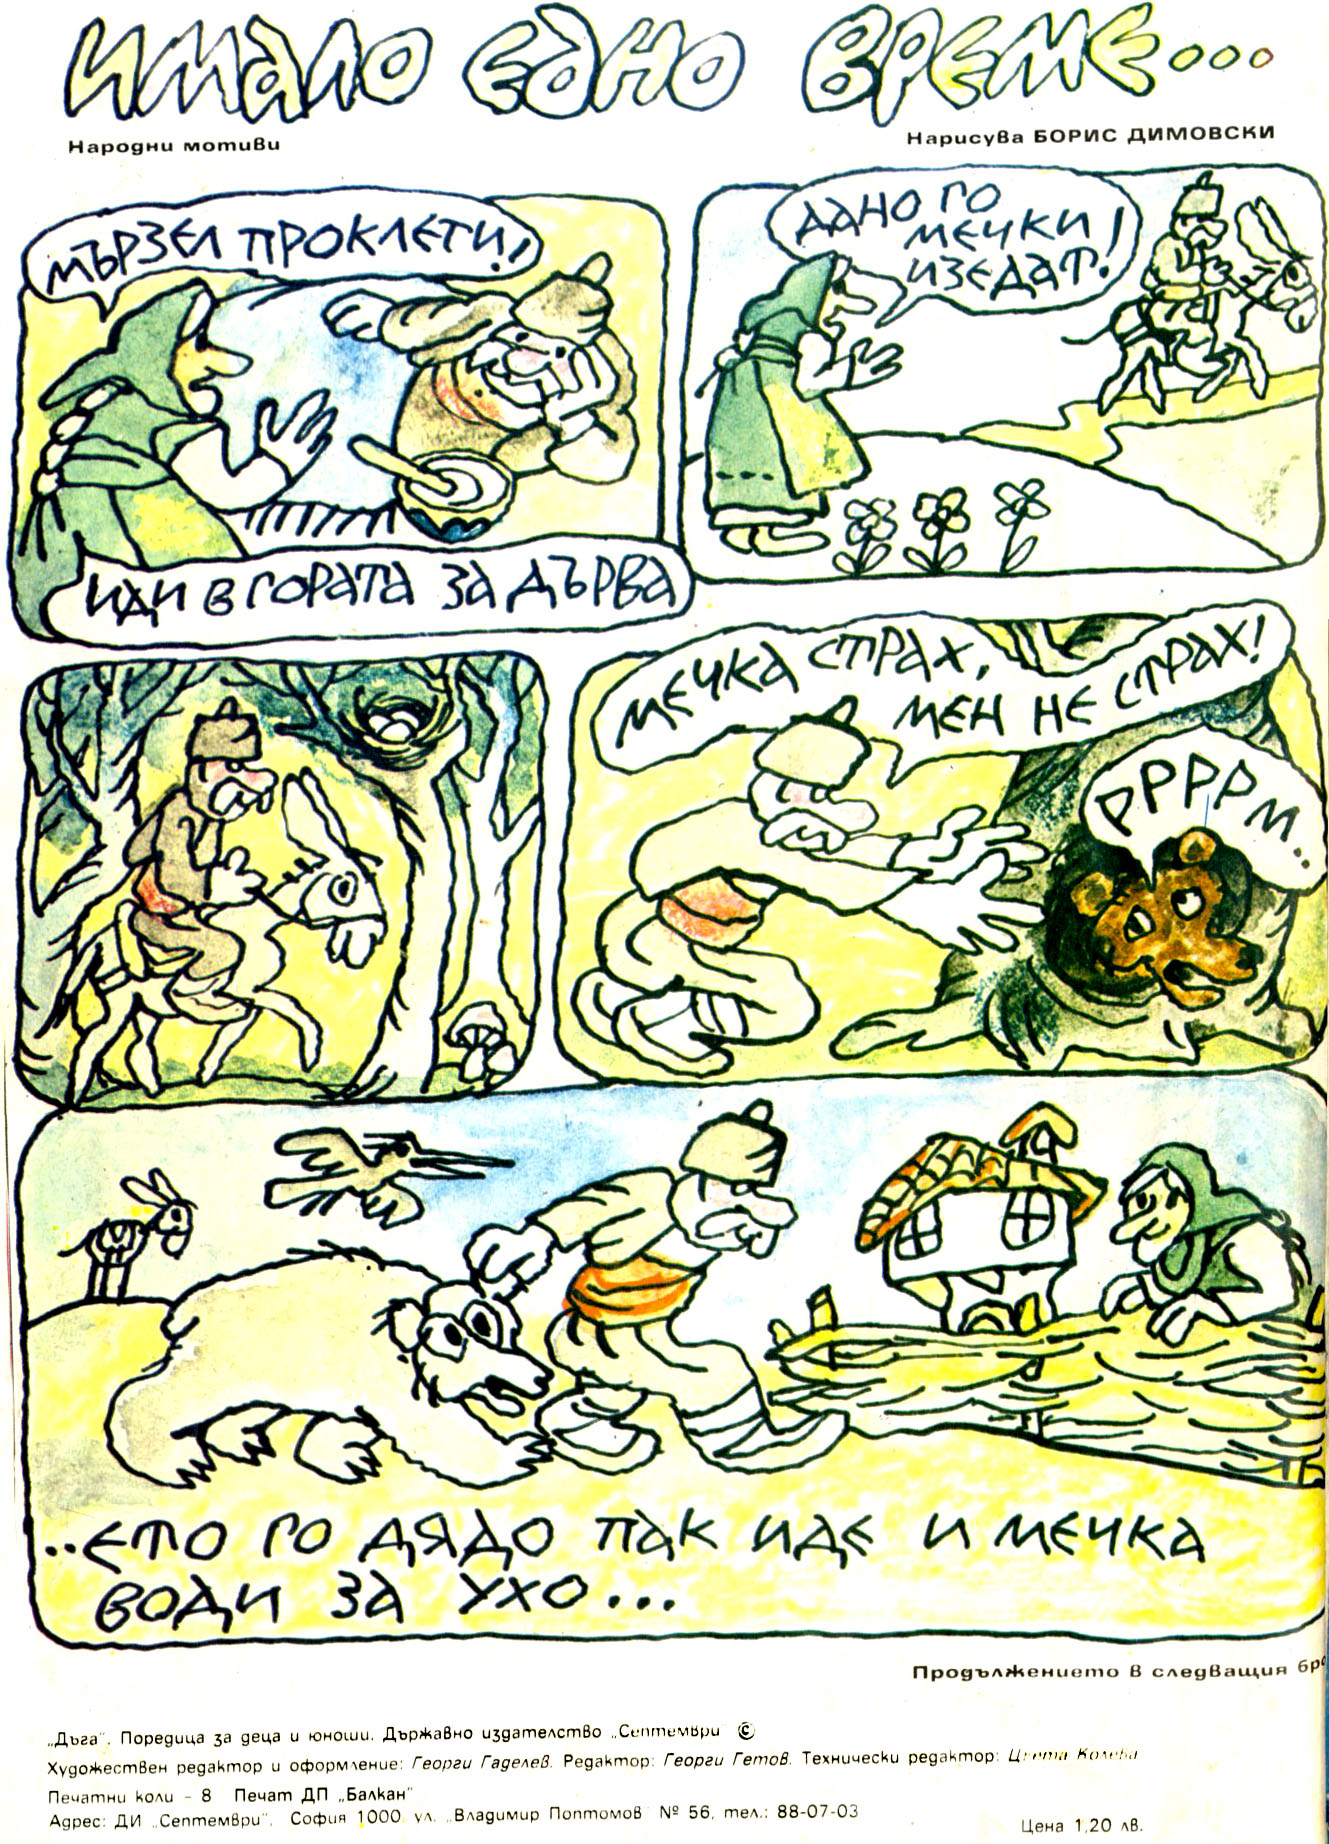 ИМАЛО ЕДНО ВРЕМЕ...
Народни мотиви
Нарисува БОРИС ДИМОВСКИ
МЪРЗЕЛ ПРОКЛЕТИ!
ИДИ В ГОРАТА ЗА ДЪРВА
ДАНО ГО
МЕЧКИ
ИЗЕДАТ!
МЕЧКА СТРАХ,
МЕН НЕ СТРАХ!
РРРРМ..
..ЕТО ГО ДЯДО ПАК ИДЕ И МЕЧКА
ВОДИ ЗА УХО...
Продължението в следващия бро
„Дъга". Поредица за деца и юноши. Държавно издателство „Септември" ©
Художествен редактор и оформление: Георги Гаделев. Редактор: Георги Гетов. Технически редактор: Цвета Колева
Печатни коли – 8 Печат ДП „Балкан"
Адрес: ДИ „Септември", София 1000 ул. „Владимир Поптомов" № 56, тел.: 88-07-03
Цена 1,20 лв.